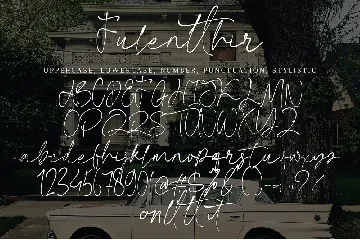 Fulentthir
UPPERCASE, LOWERCASE, NUMBER, PUNCTUATION, STYLISTIC
ABCDEFGHIJKLMN
OPQRSTUVWXYZ
abcdefghijklmnopqrstuvwxyz
1234567890!@#$%